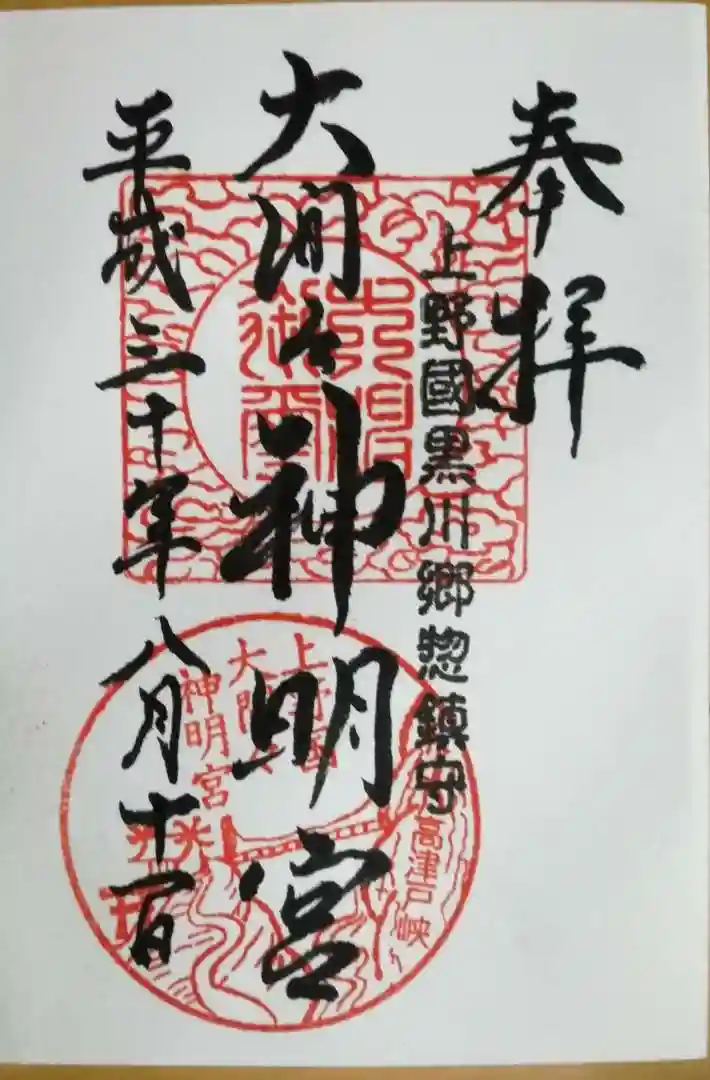 奉拝
上野國黒川郷惣鎮守
大間々神明宮
平成三十年八月十一日
上野国
大間々
神明宮
高津戸峡